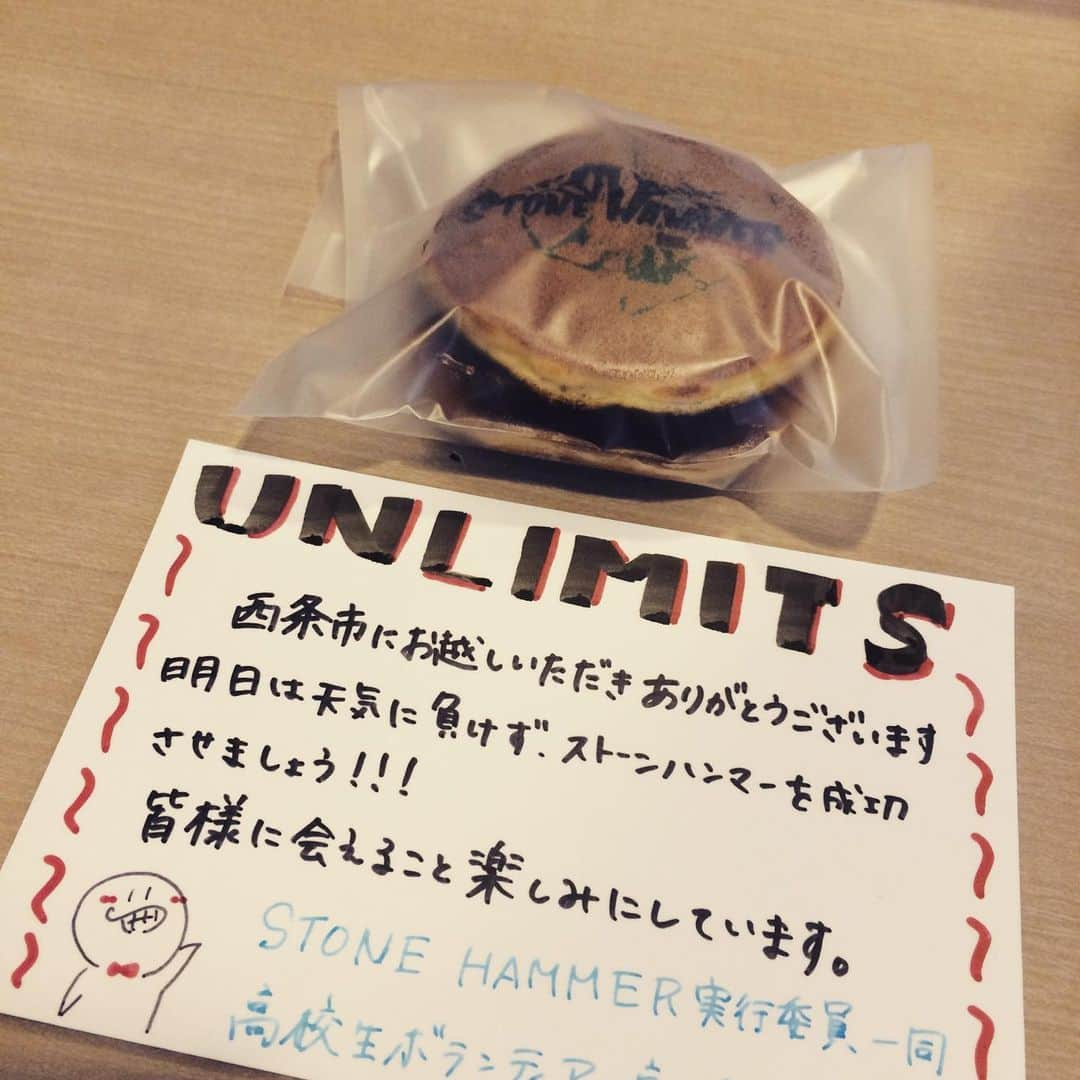 STONE HAMMER
UNLIMITS
西条市にお越しいただきありがとうございます
明日は天気に負けず、ストーンハンマーを成功
させましょう!!!
皆様に会えること楽しみにしています。
STONE HAMMER実行委員一同
高校生ボランティア